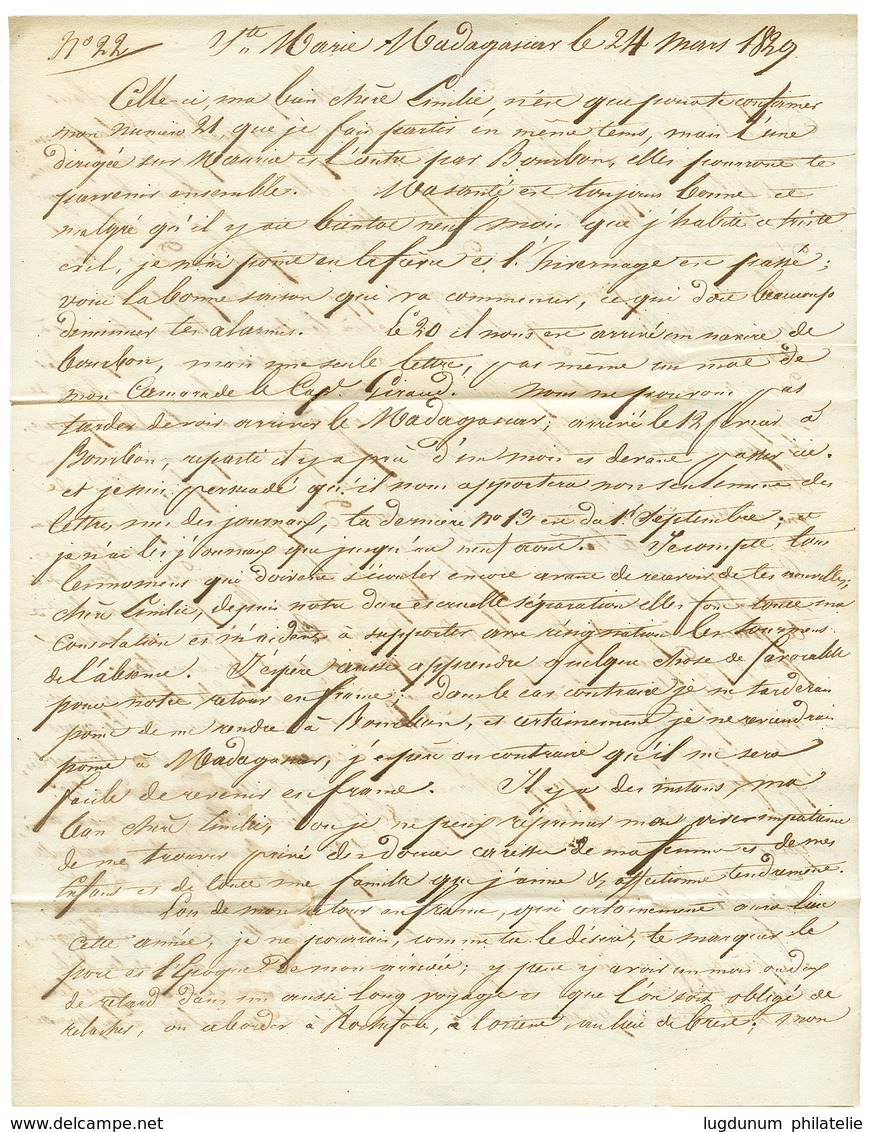 No 22 Ste Marie Madagascar le 24 mars 1829
Celle-ci, ma bien chère Emilie, n'est que pour te confirmer
mon numéro 21, que je fais partir en même tems, mais l'une
dirigée sur Maurice et l'autre par Bourbon, elles pourront te
parvenir ensemble. Ma santé est toujours bonne et
malgré qu'il y ait bientot neuf mois que j'habite ce triste
exil, je n'ai point eu la fièvre et l'hivernage est passé;
voici la bonne saison qui va commencer, ce qui doit beaucoup
diminuer tes alarmes. Le 20 il nous est arrivé un navire de
bourbon, mais une seule lettre, pas même un mot de
mon Camarade le Capne Giraud. Nous ne pouvons pas
tarder de voir arriver le Madagascar; arrivé le 12 février à
Bourbon, reparti il y a près d'un mois et devant passer ici.
et je suis persuadé qu'il nous apportera non seulement des
lettres mais des journaux, ta dernière no 13 est du 1er Septembre. et
je n'ai lu journaux que jusqu'au neuf aout. Je compte tous
les momens que doivent s'écouler encore avant de recevoir de tes nouvelles;
chère Emilie, depuis notre dure et cruelle séparation elles font toute ma
Consolation et m'aident à supporter avec résignation les tourmens
de l'absence. J'espère aussi apprendre quelque chose de favorable
pour notre retour en france; dans le cas contraire je ne tarderai
point de me rendre à Bourbon, et certainement je ne reviendrai
point à Madagascar, j'espère au contraire qu'il me sera
facile de revenir en france. Il y a des instans, ma
bien chère Emilie, ou je ne peux réprimer mon impatience
de me trouver privé des douces caresses de ma femme et de mes
Enfans et de toute une famille que j'aime & affectionne tendrement.
Lors de mon retour en france, qui certainement aura lieu
cette année, je ne pourrai, comme tu le désires, te marquer le
port et l'Epoque de mon arrivée; y peut y avoir un mois ou deux
de retard dans un aussi long voyage et que l'on soit obligé de
relacher, ou aborder à Rochefort, à lorient au lieu de brest; mon
www.delcampe.net
lugdunum philatelie